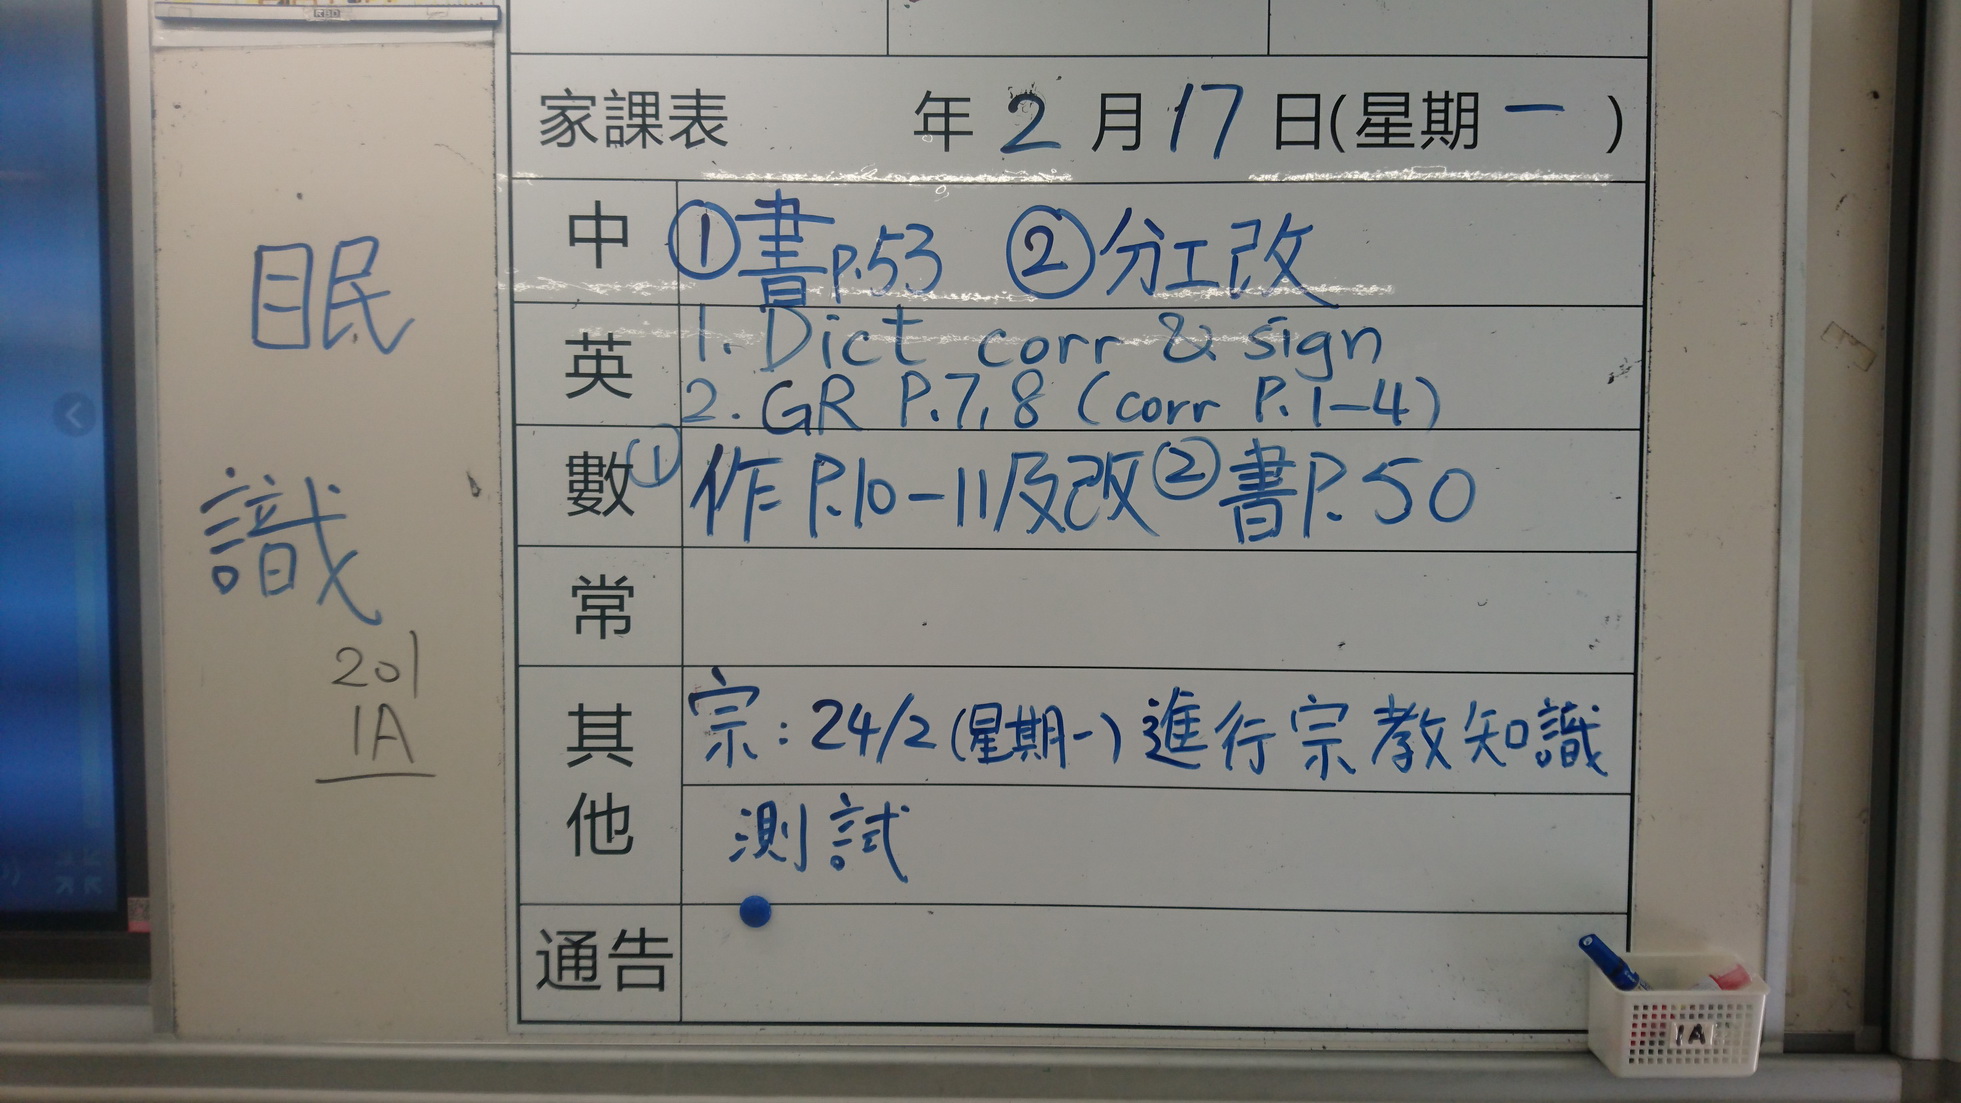 家課表 年 2 月 17 日(星期 一 )
中 ①書P.53 ②分工改
英 1. Dict corr & sign
2. GR P.7,8 (corr P.1-4)
數 ①作P.10-11及改②書P.50
常
其他 宗:24/2(星期一)進行宗教知識
測試
通告
眠
識
201
1A
1A